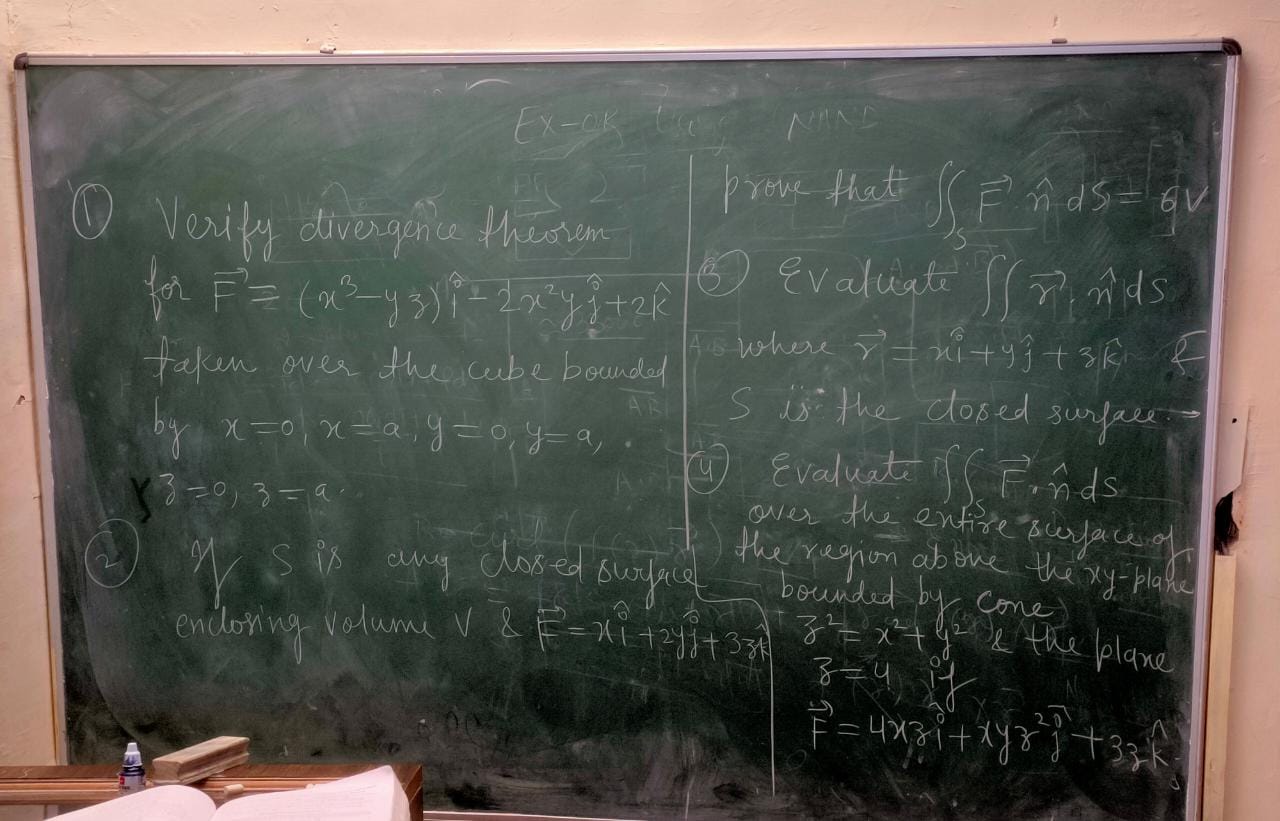 Ex-OR Using NAND
① Verify divergence theorem
for F⃗ = (x³-yz)î - 2x²yĵ + 2k̂
taken over the cube bounded
by x=0, x=a, y=0, y=a,
z=0, z=a.
② If S is any closed surface
enclosing volume V & F⃗ = xî + 2yĵ + 3zk̂
prove that ∬_S F⃗ . n̂ dS = 6V
③ Evaluate ∬ r⃗ . n̂ dS
where r⃗ = xî + yĵ + zk̂ &
S is the closed surface
④ Evaluate ∬_S F⃗ . n̂ dS
over the entire surface of
the region above the xy-plane
bounded by cone
z² = x² + y² & the plane
z=4, if
F⃗ = 4xzî + xyz²ĵ + 3zk̂.